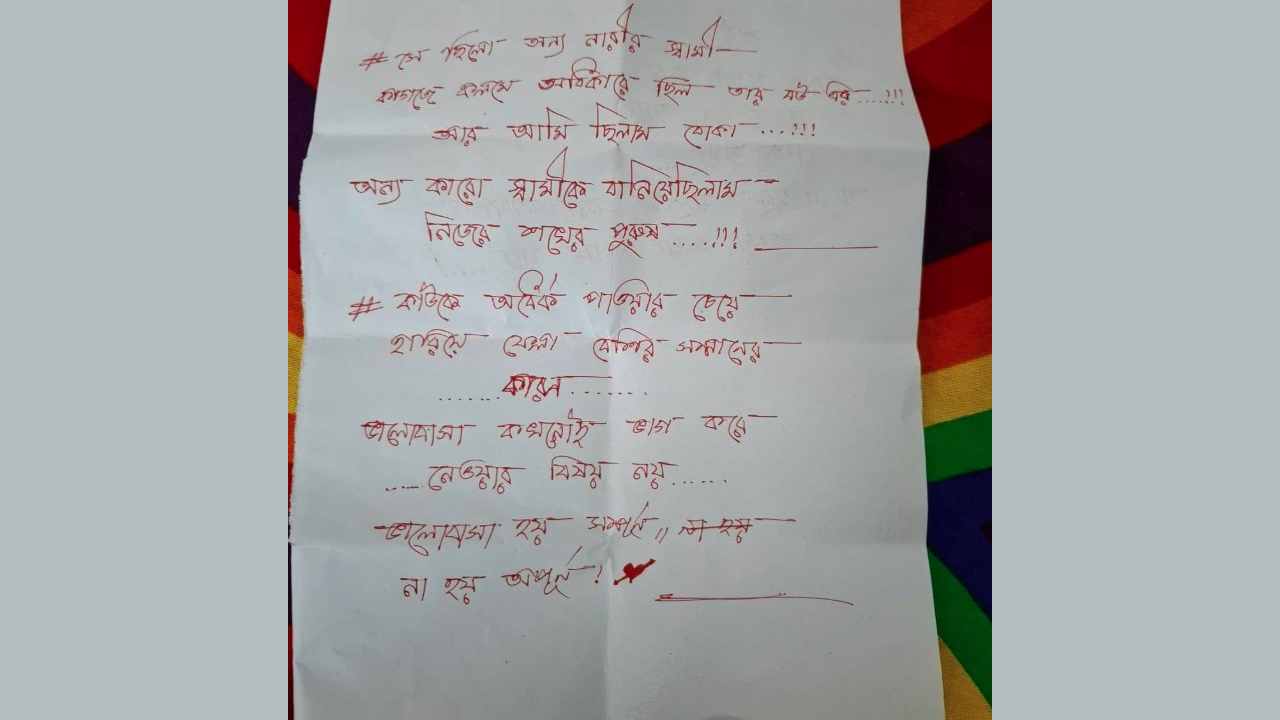 # সে ছিলো অন্য নারীর স্বামী—
কাগজে কলমে অধিকারে ছিল তার বউ এর.....!!!
আর আমি ছিলাম বোকা ...!!!
অন্য কারো স্বামীকে বানিয়েছিলাম —
নিজের শখের পুরুষ ....!!! ______
# কাউকে অর্ধেক পাওয়ার চেয়ে
হারিয়ে ফেলা বেশির সম্মানের
.......কারন.......
ভালোবাসা কখনোই ভাগ করে
.....নেওয়ার বিষয় নয়......
ভালোবাসা হয় সম্পূর্ন,, না হয়
না হয় অপূর্ন !